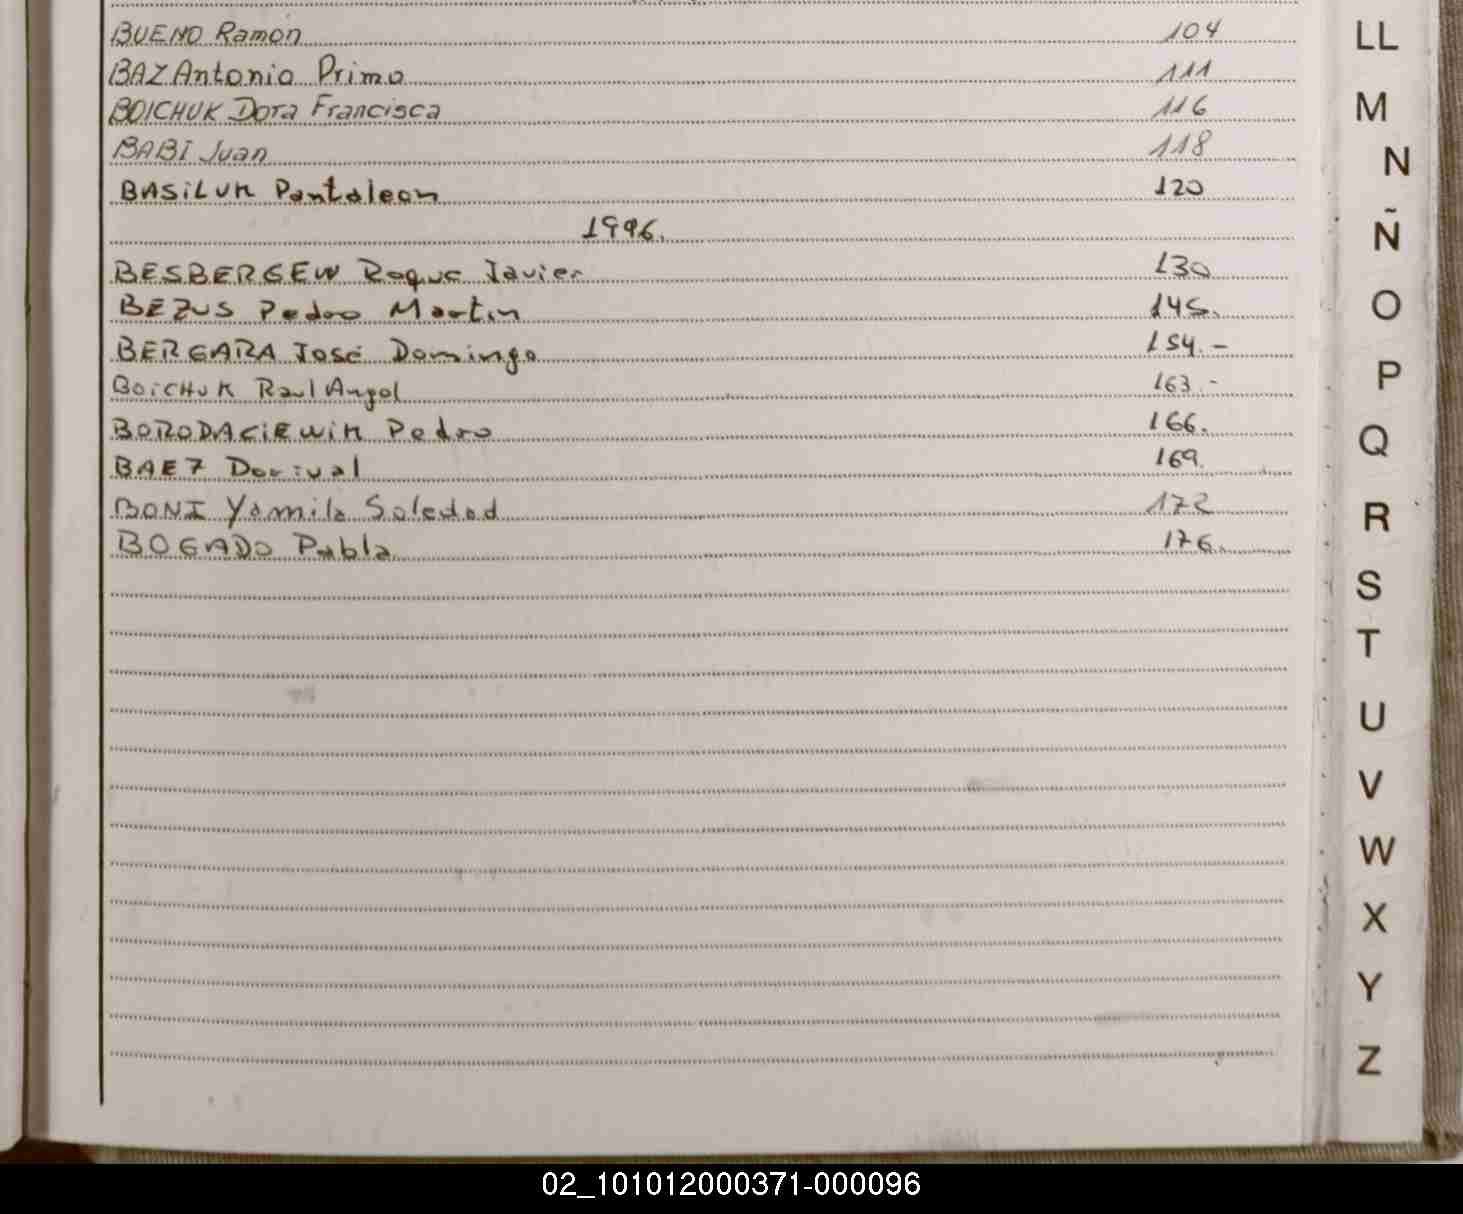 BUENO Ramón 104
BAZ Antonio Primo 111
BOICHUK Dora Francisca 116
BABI Juan 118
BASiLUK Pantaleon 120
1996.
BESBERGEW Roque Javier 130
BEZUS Pedro Martin 145.
BERGARA José Domingo 154.-
BOiCHUK Raul Angel 163.-
BORODACiEWiK Pedro 166.
BAEZ Dorival 169.
BONI Yamila Soledad 172
BOGADO Pabla 176.
LL
M
N
Ñ
O
P
Q
R
S
T
U
V
W
X
Y
Z
02_101012000371-000096